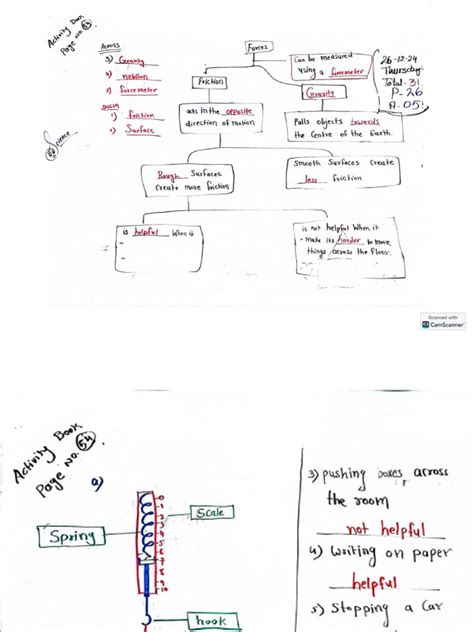 Activity Book
Page No. 53
Across
3) Gravity
4) newton
5) forcemeter
Down
1) friction
2) Surface
Science
Forces
Can be measured
using a forcemeter
26-12-24
Thursday
Total-31
P-26
A-05
Friction
Gravity
acts in the opposite
direction of motion
Pulls objects towards
the Centre of the Earth.
Rough Surfaces
Create more friction
Smooth Surfaces Create
less friction
is helpful When it
-
-
is not helpful When it
- make its harder to move
things across the floor.
Scanned with
CS CamScanner
Activity Book
Page No. 54
a)
Spring
Scale
hook
0
1
2
3
4
5
6
7
8
9
10
3) pushing boxes across
the room
not helpful
4) Writing on paper
helpful
5) Stopping a Car